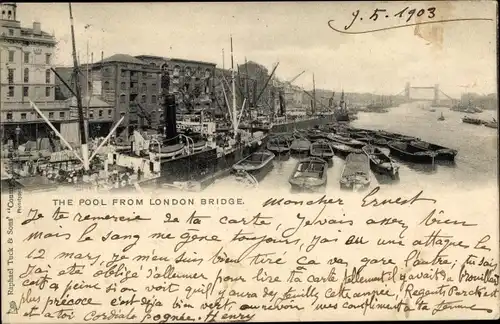 9.5.1903
THE POOL FROM LONDON BRIDGE.
Raphael Tuck & Sons' "County" Postcard
mon cher Ernest
Je te remercie de ta carte, j'avais assez bien
mais le sang me gêne toujours, j'ai eu une attaque le
12 mars, je me suis bien tiré ça va, gare l'autre; tu sais
j'ai été obligé d'essuyer pour lire ta carte tellement il y avait du brouillard
c'est à peine si on voit qu'il y aura de feuilles cette année, Regents Park est
plus précoce c'est déjà bien vert au revoir mes compliments à ta femme
et à toi Cordiale poignée. Henry